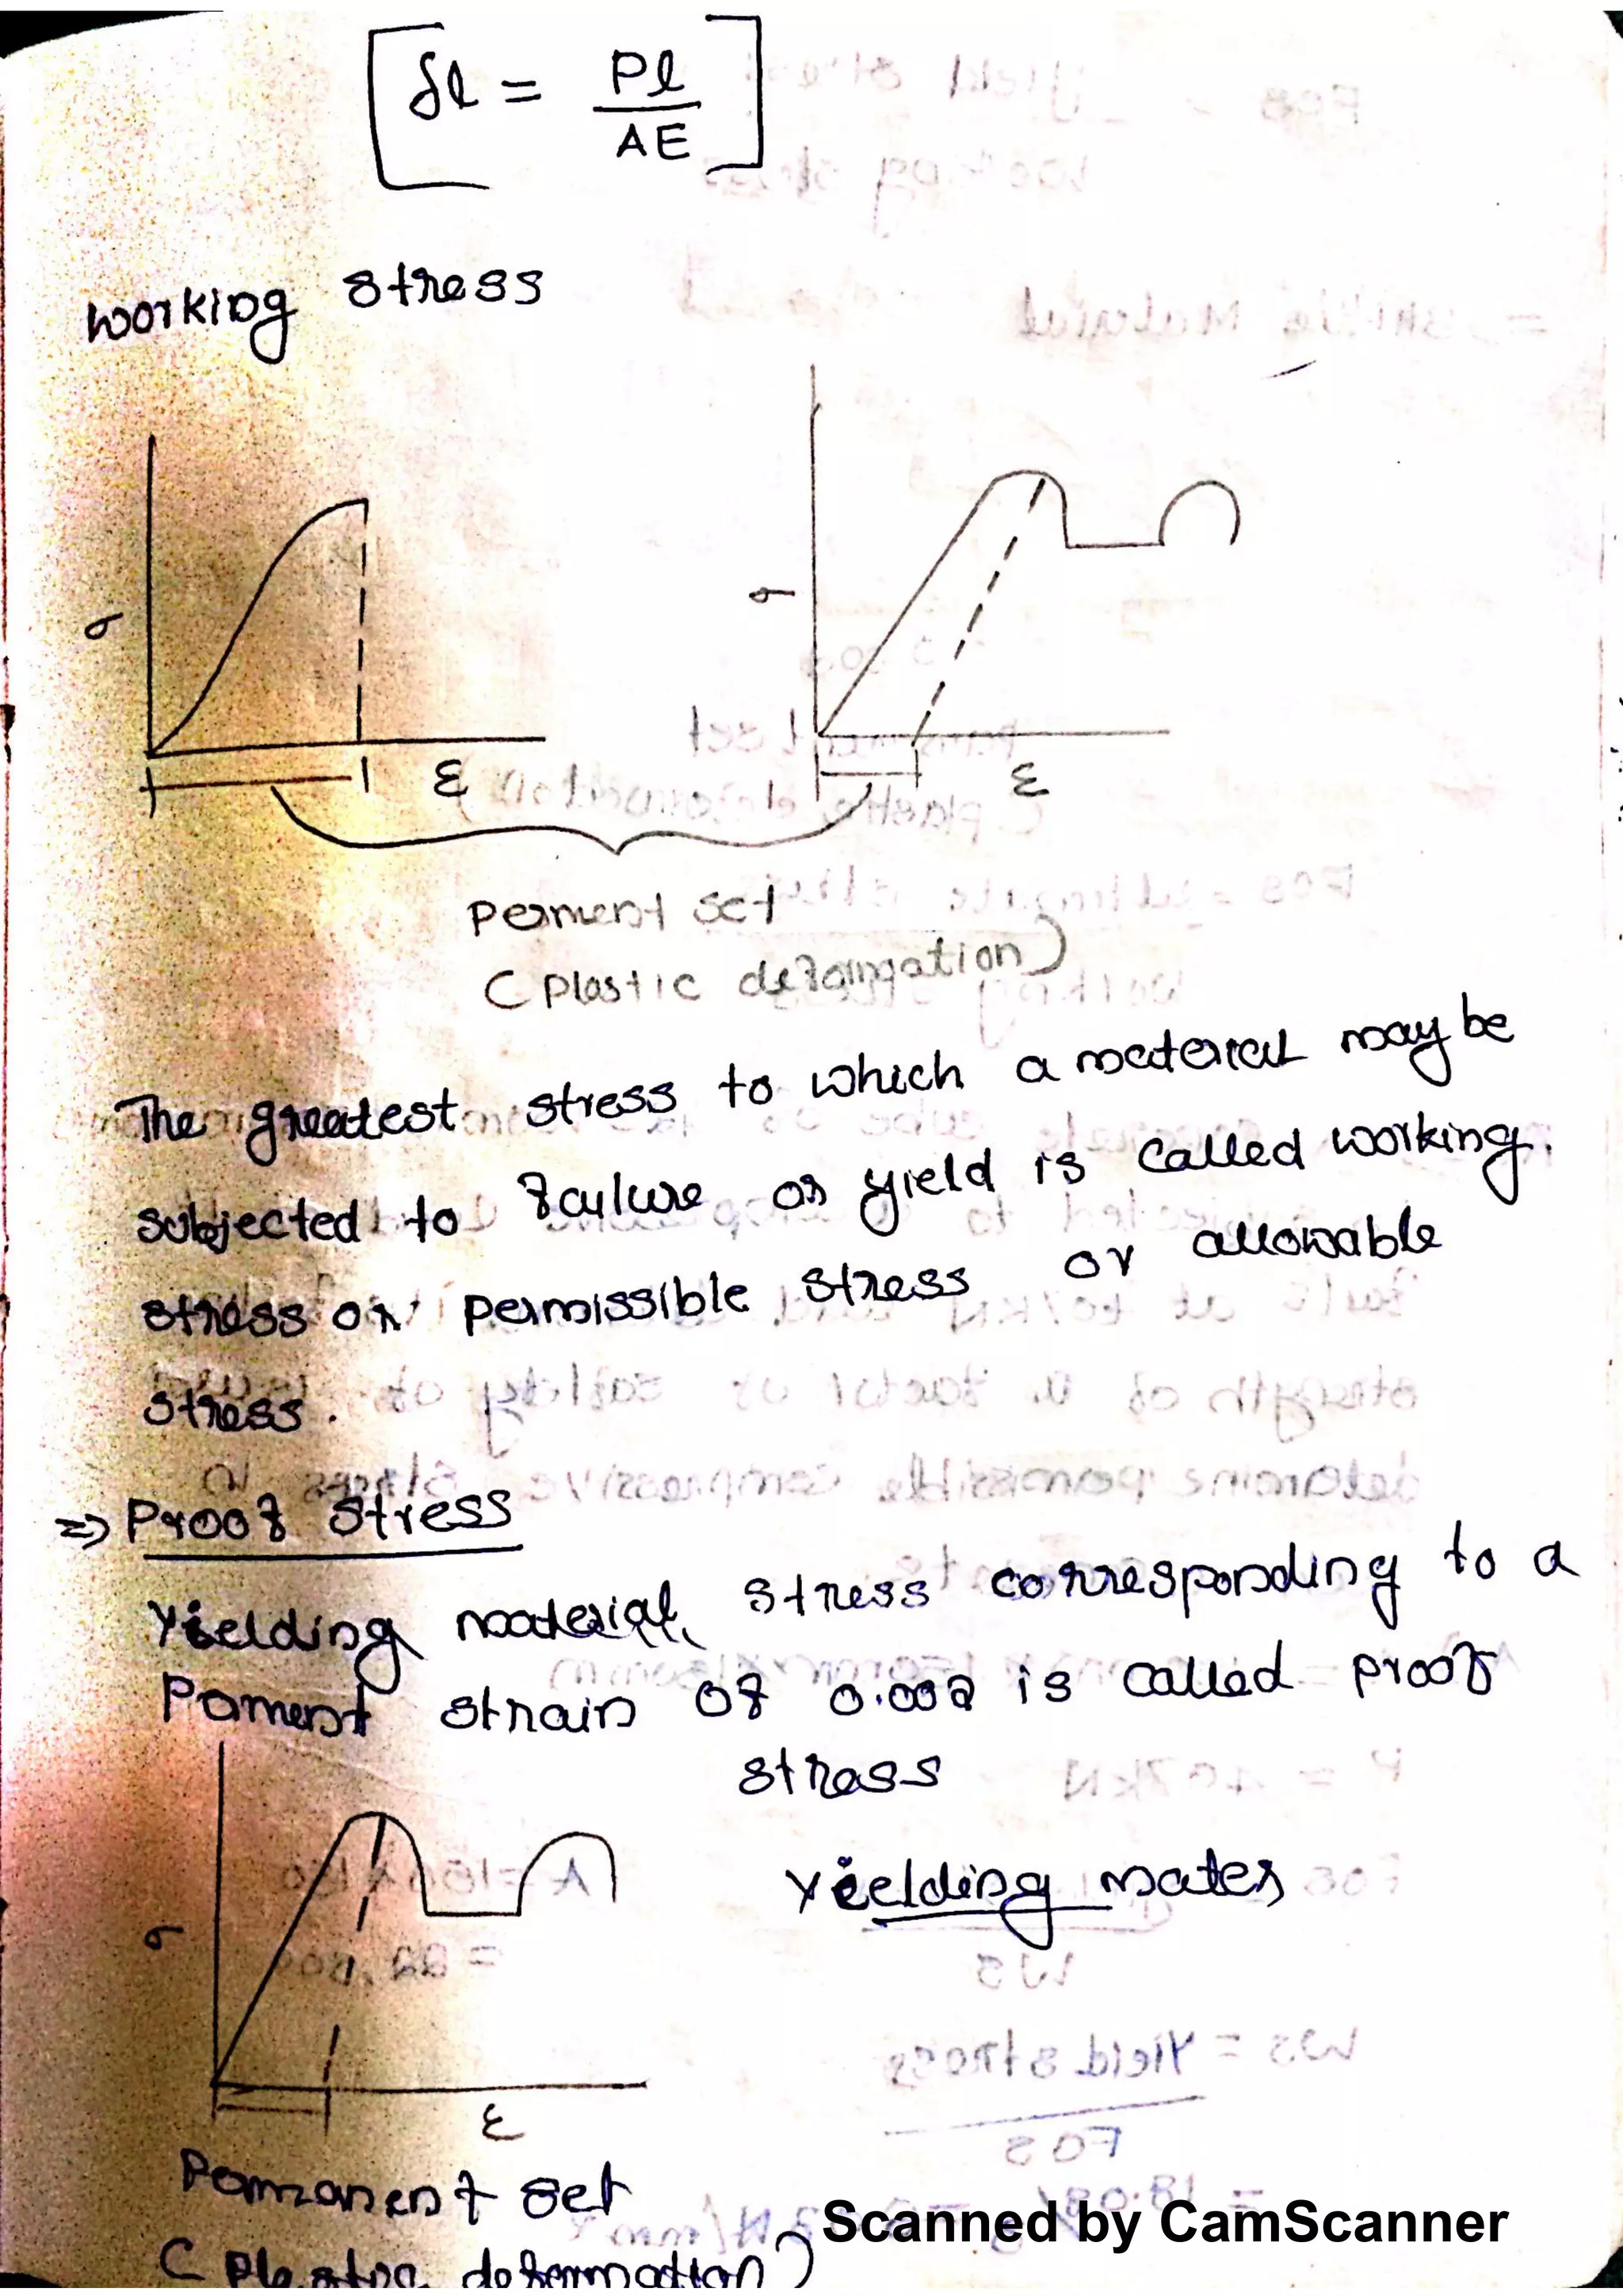 δl = Pl
AE
working stress
σ
σ
ε
ε
perment set
( plastic deformation)
The greatest stress to which a material may be
subjected to failure or yield is called working.
stress or permissible stress or allowable
stress.
=> Proof stress
Yielding material, stress corresponding to a
Pament strain of 0.002 is called proof
stress
Yielding mater
σ
ε
Pamanent set
( Plastic deformation)
Scanned by CamScanner